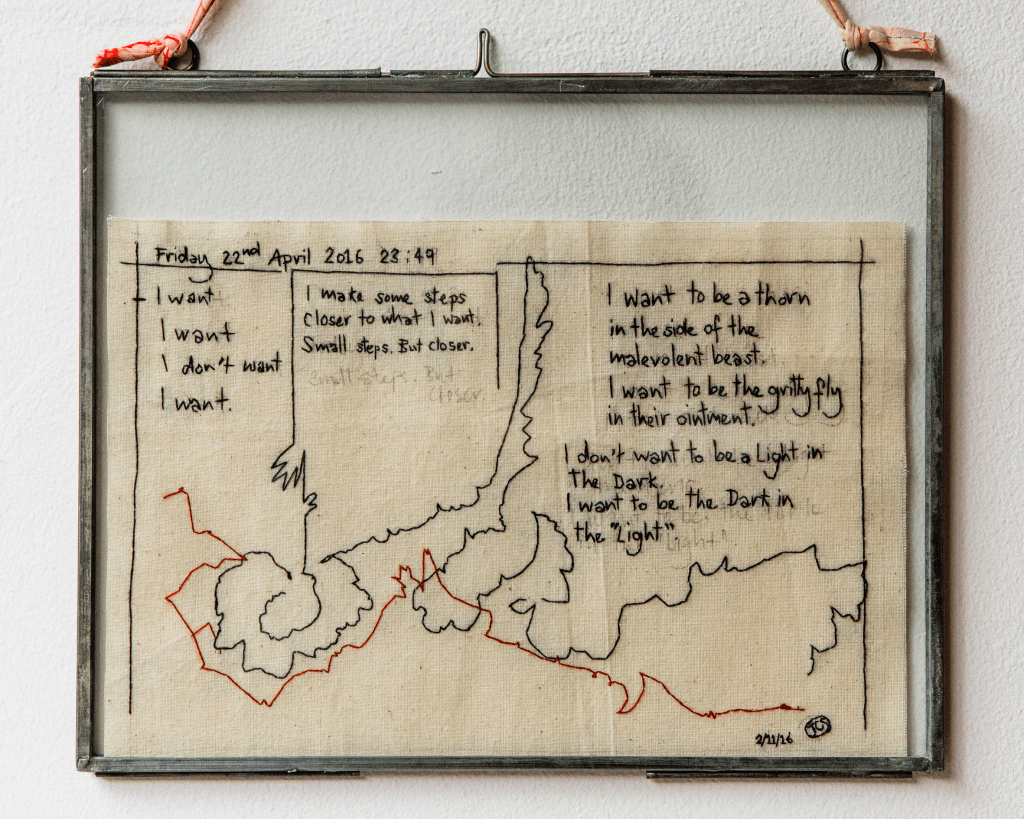 Friday 22nd April 2016 23:49
I want
I want
I don't want
I want.
I make some steps
Closer to what I want.
Small steps. But closer.
Small steps. But
loser.
I want to be a thorn
in the side of the
malevolent beast.
I want to be the gritty fly
in their ointment.
I don't want to be a Light in
The Dark.
I want to be the Dark in
the "Light"
Light"
2/11/16
JCS